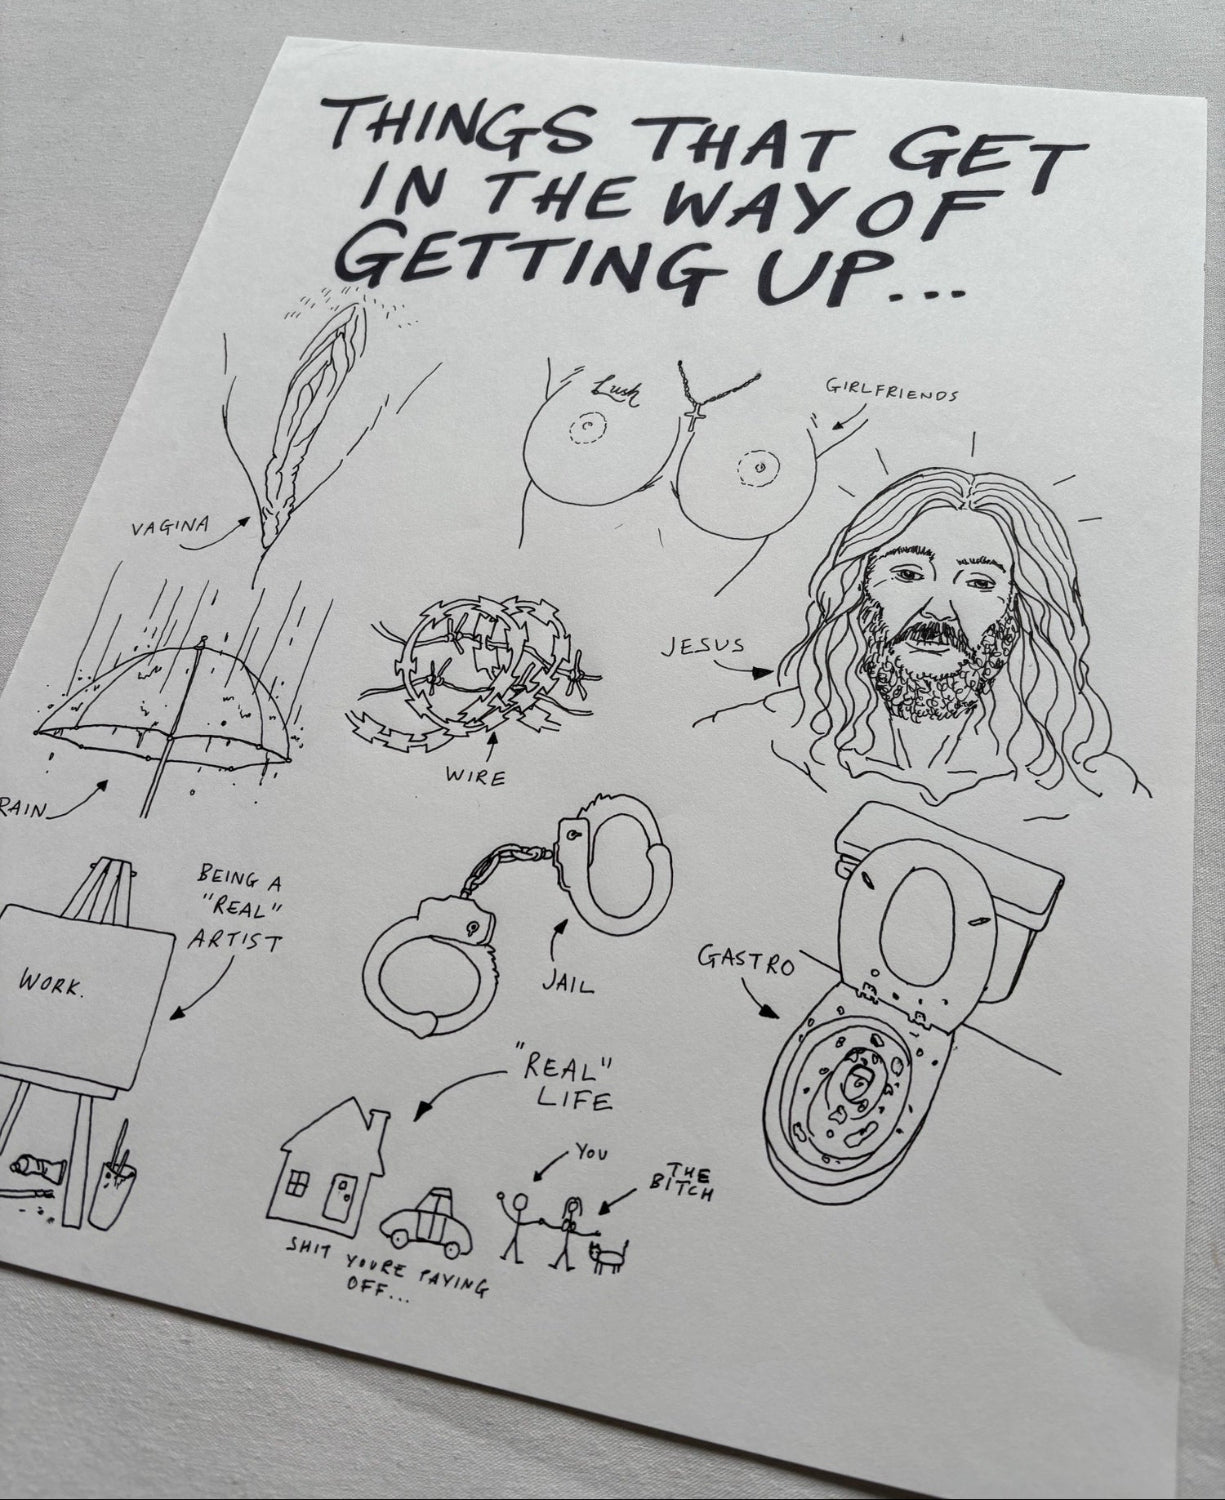 THINGS THAT GET
IN THE WAY OF
GETTING UP...
Lush
GIRLFRIENDS
VAGINA
JESUS
WIRE
RAIN
BEING A
"REAL"
ARTIST
WORK.
JAIL
GASTRO
"REAL"
LIFE
YOU
THE
BITCH
SHIT YOURE PAYING
OFF...